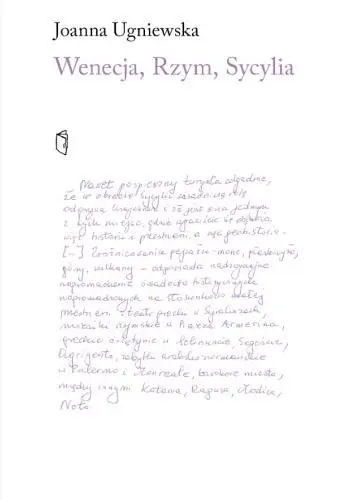 Joanna Ugniewska
Wenecja, Rzym, Sycylia
Nawet pospieszny turysta odgadnie,
że w obrazie Sycylii zasadniczą rolę
odgrywa i że jest ona jednym
z tych miejsc, gdzie
więc historii i przestrzeni, a nie psychostorie.
[–] Zróżnicowanie pejzażu – morze, płaskowyże,
góry, wulkany – odpowiada
nagromadzenie śladów historycznych
nagromadzonych na stosunkowo małej
przestrzeni: teatr grecki w Syrakuzach,
mozaiki rzymskie w Piazza Armerina,
greckie świątynie w Selinuncie, Segeście,
Agrigento, zabytki arabsko-normańskie
w Palermo i Monreale, barokowe miasta,
między innymi Katania, Ragusa, Modica,
Noto.